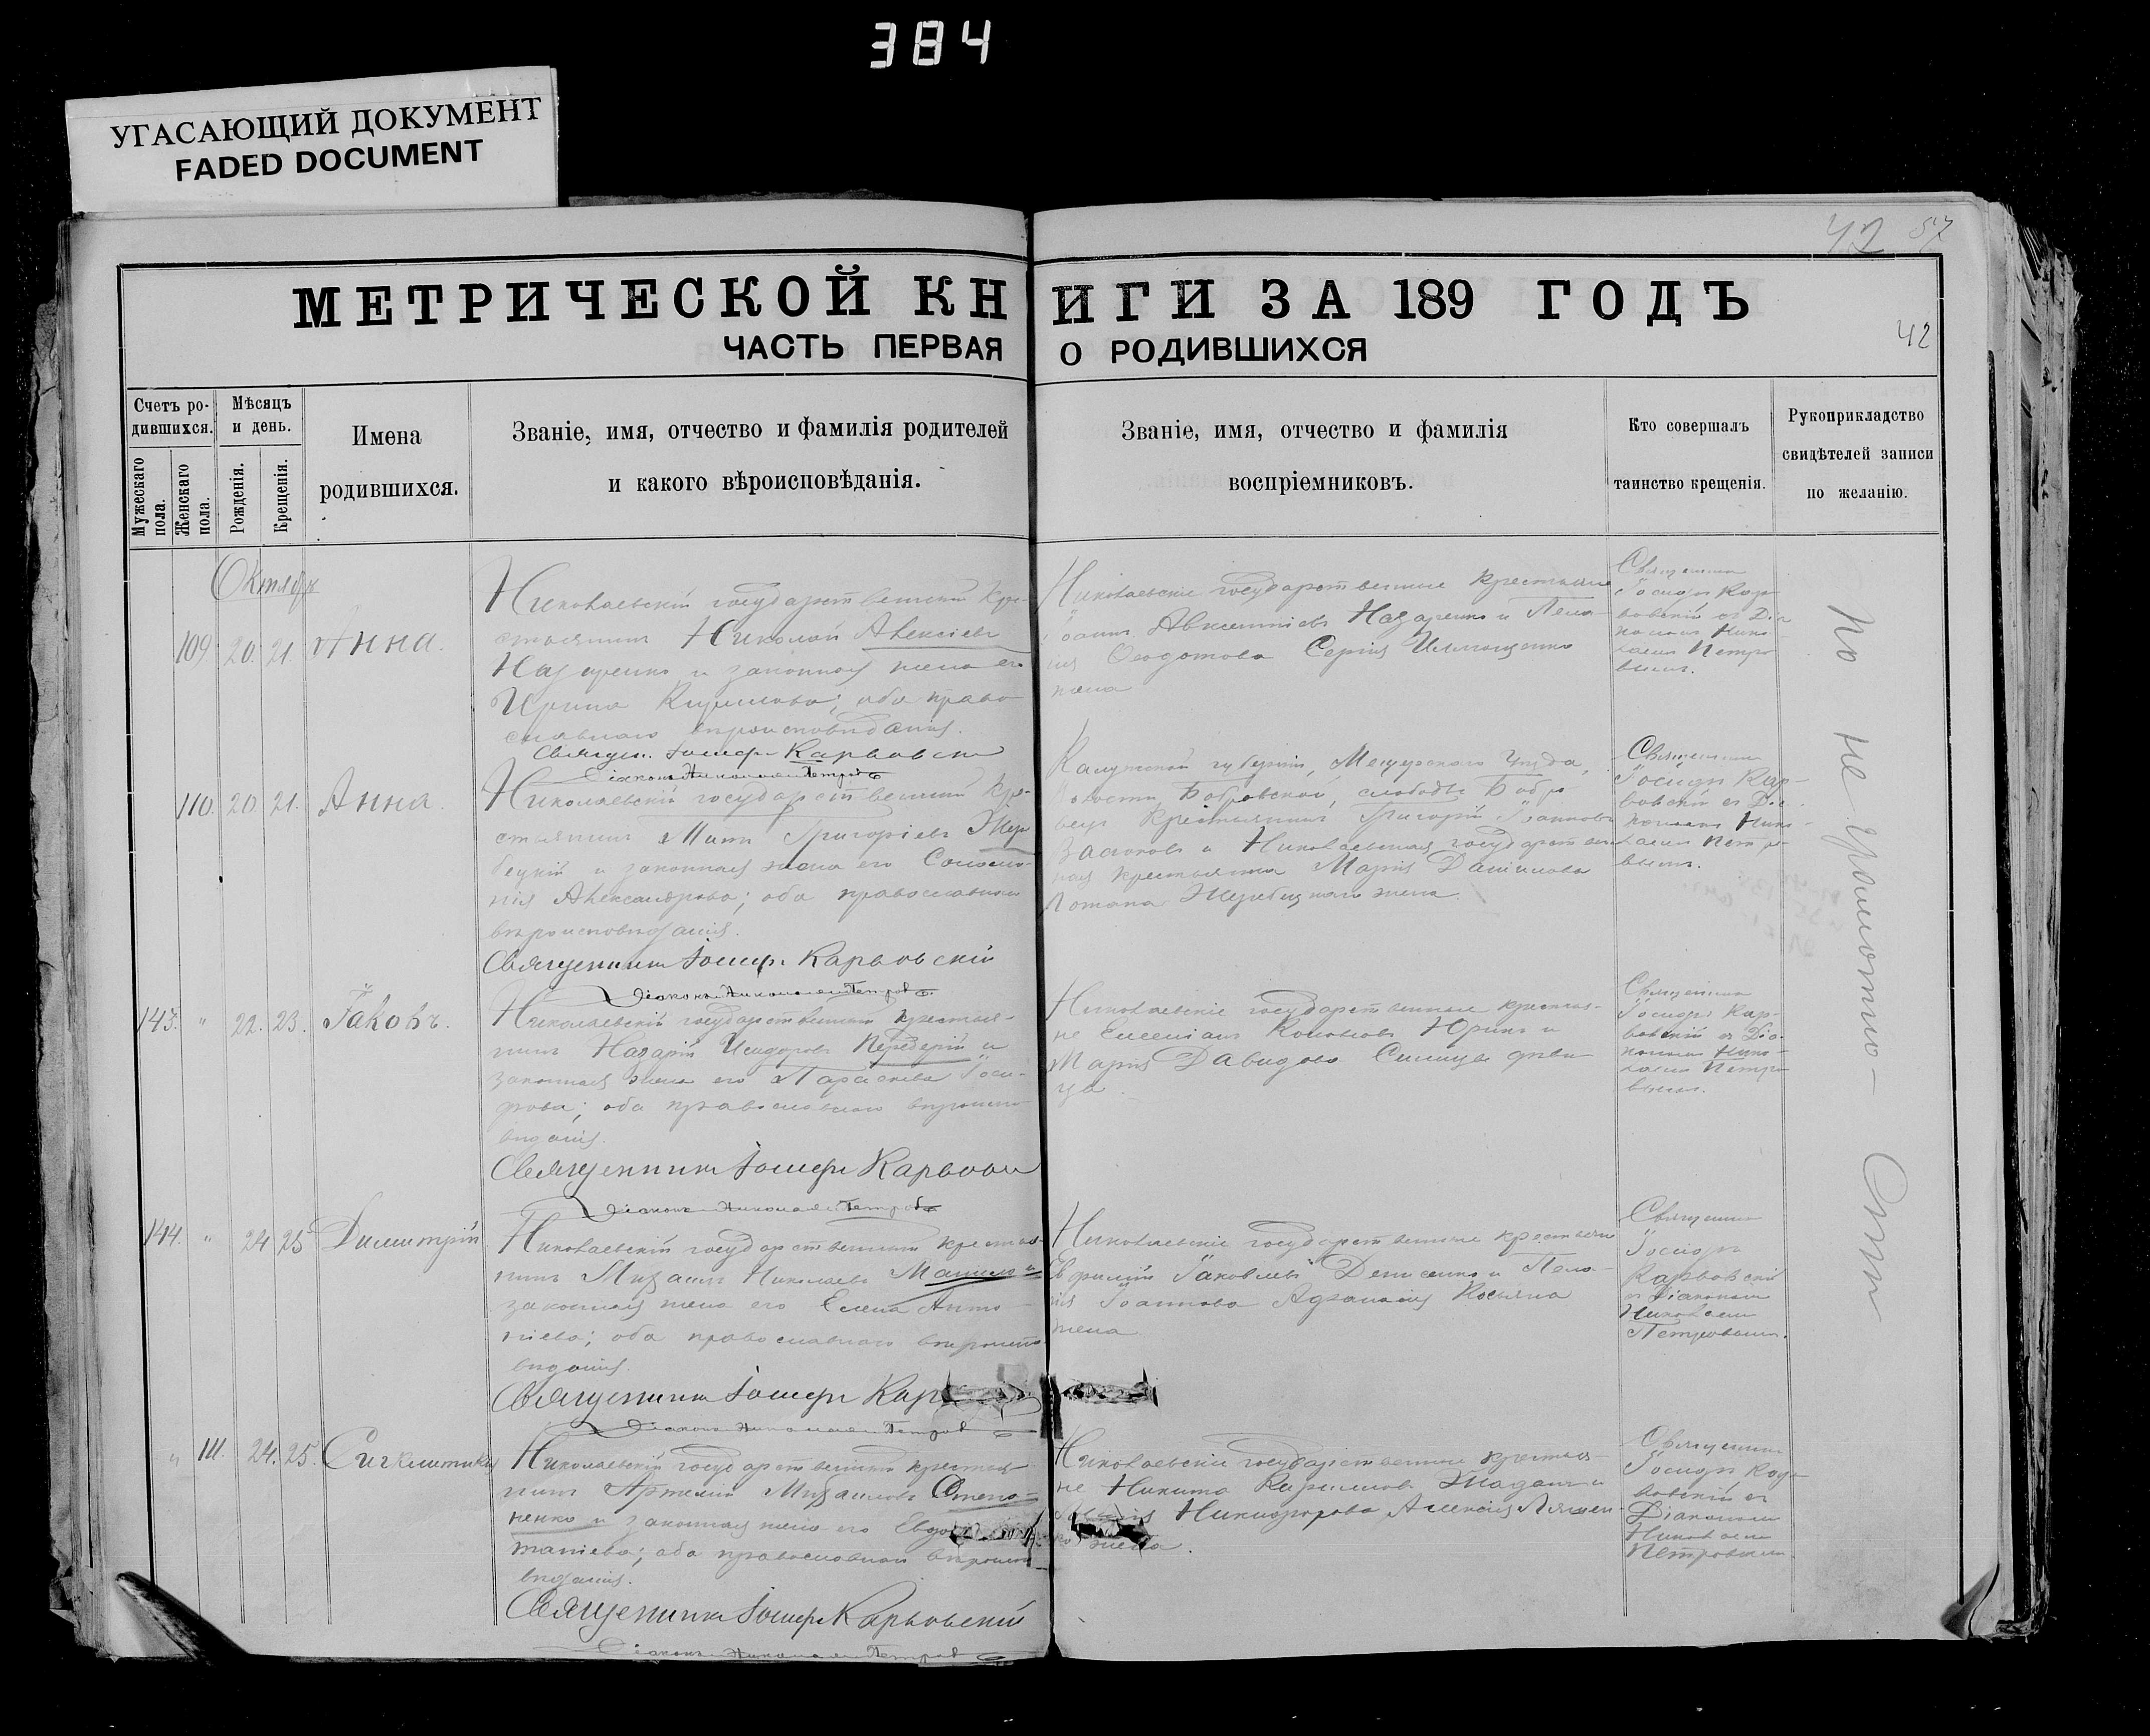 384
УГАСАЮЩИЙ ДОКУМЕНТ
FADED DOCUMENT
42 57
МЕТРИЧЕСКОЙ КНИГИ ЗА 189 ГОДЪ
ЧАСТЬ ПЕРВАЯ О РОДИВШИХСЯ
42
Счетъ ро-
дившихся.
Мужескаго
пола.
Женскаго
пола.
Мѣсяцъ
и день.
Рожденія.
Крещенія.
Имена
родившихся.
Званіе, имя, отчество и фамилія родителей
и какого вѣроисповѣданія.
Званіе, имя, отчество и фамилія
воспріемниковъ.
Кто совершалъ
таинство крещенія.
Рукоприкладство
свидѣтелей записи
по желанію.
Октябрь
109 20. 21. Анна.
Николаевскій государственный кре-
стьянинъ Николай Алексіевъ
Назаренко и законная жена его
Ирина Кирилова; оба право
славнаго вѣроисповѣданія.
Священ. Іосифъ Карвовскі
Діаконъ Николай Петровъ
Николаевскіе государственные крестьяне
Іоаннъ Авксентіевъ Назаренко и Пела
гія Ѳеодотова Сергія
жена
Священникъ
Іосифъ Кар
вовскій съ Діа
кономъ Нико
лаемъ Петро
вымъ.
110. 20. 21. Анна.
Николаевскій государственный кре-
стьянинъ Григоріевъ Жере
бецкій и законная жена его Соломо
нія Александрова; оба православнаго
вѣроисповѣданія.
Священникъ Іосифъ Карвовскій
Діаконъ Николай Петровъ
Калужской губерніи, Уѣзда,
волости Бобровской, слободы Бобро
Крестьянинъ Григорій Іоанновъ
и Николаевская государствен
ная крестьянка Марія Даніилова
Потапа Жеребецкаго жена.
Священникъ
Іосифъ Кар-
вовскій съ Діа
кономъ Нико-
лаемъ Петро
вымъ.
143. " 22. 23. Іаковъ.
Николаевскій государственный крестья-
нинъ Назарій Исидоровъ Передерій и
законная жена его Параскева Іоси-
фова; оба православнаго вѣроиспо
вѣданія.
Священникъ Іосифъ Карвовск
Діаконъ Николай Петровъ
Николаевскіе государственные крестья-
не Юринъ и
Марія Давидова дѣви
ца.
Священникъ
Іосифъ Кар-
вовскій съ Діа-
кономъ Нико-
лаемъ Петро
вымъ.
144. " 24 25 Димитрій
Николаевскій государственный крестья-
нинъ Михаилъ Николаевъ
законная жена его Елена Анто
ніева; оба православнаго вѣроиспо
вѣданія.
Священникъ Іосифъ Кар
Діаконъ Николай Петровъ
Николаевскіе государственные крестьяне
Евфимій Іаковлевъ Денисенко и Пела-
гія Іоаннова Афанасія
жена
Священникъ
Іосифъ
Карвовскій
съ Діакономъ
Николаемъ
Петровымъ.
" 111. 24. 25. Сигклитикія
Николаевскій государственный крестья
нинъ Артемій Михаиловъ Степа-
ненко и законная жена его Евдок
оба православнаго вѣроиспо
вѣданія.
Священникъ Іосифъ Карвовскій
Діаконъ Николай Петровъ
Николаевскіе государственные крестья-
не Никита Кириловъ Жаданъ и
Никифорова Алексія Ляшен
ко жена.
Священникъ
Іосифъ Кар-
вовскій съ
Діакономъ
Николаемъ
Петровымъ